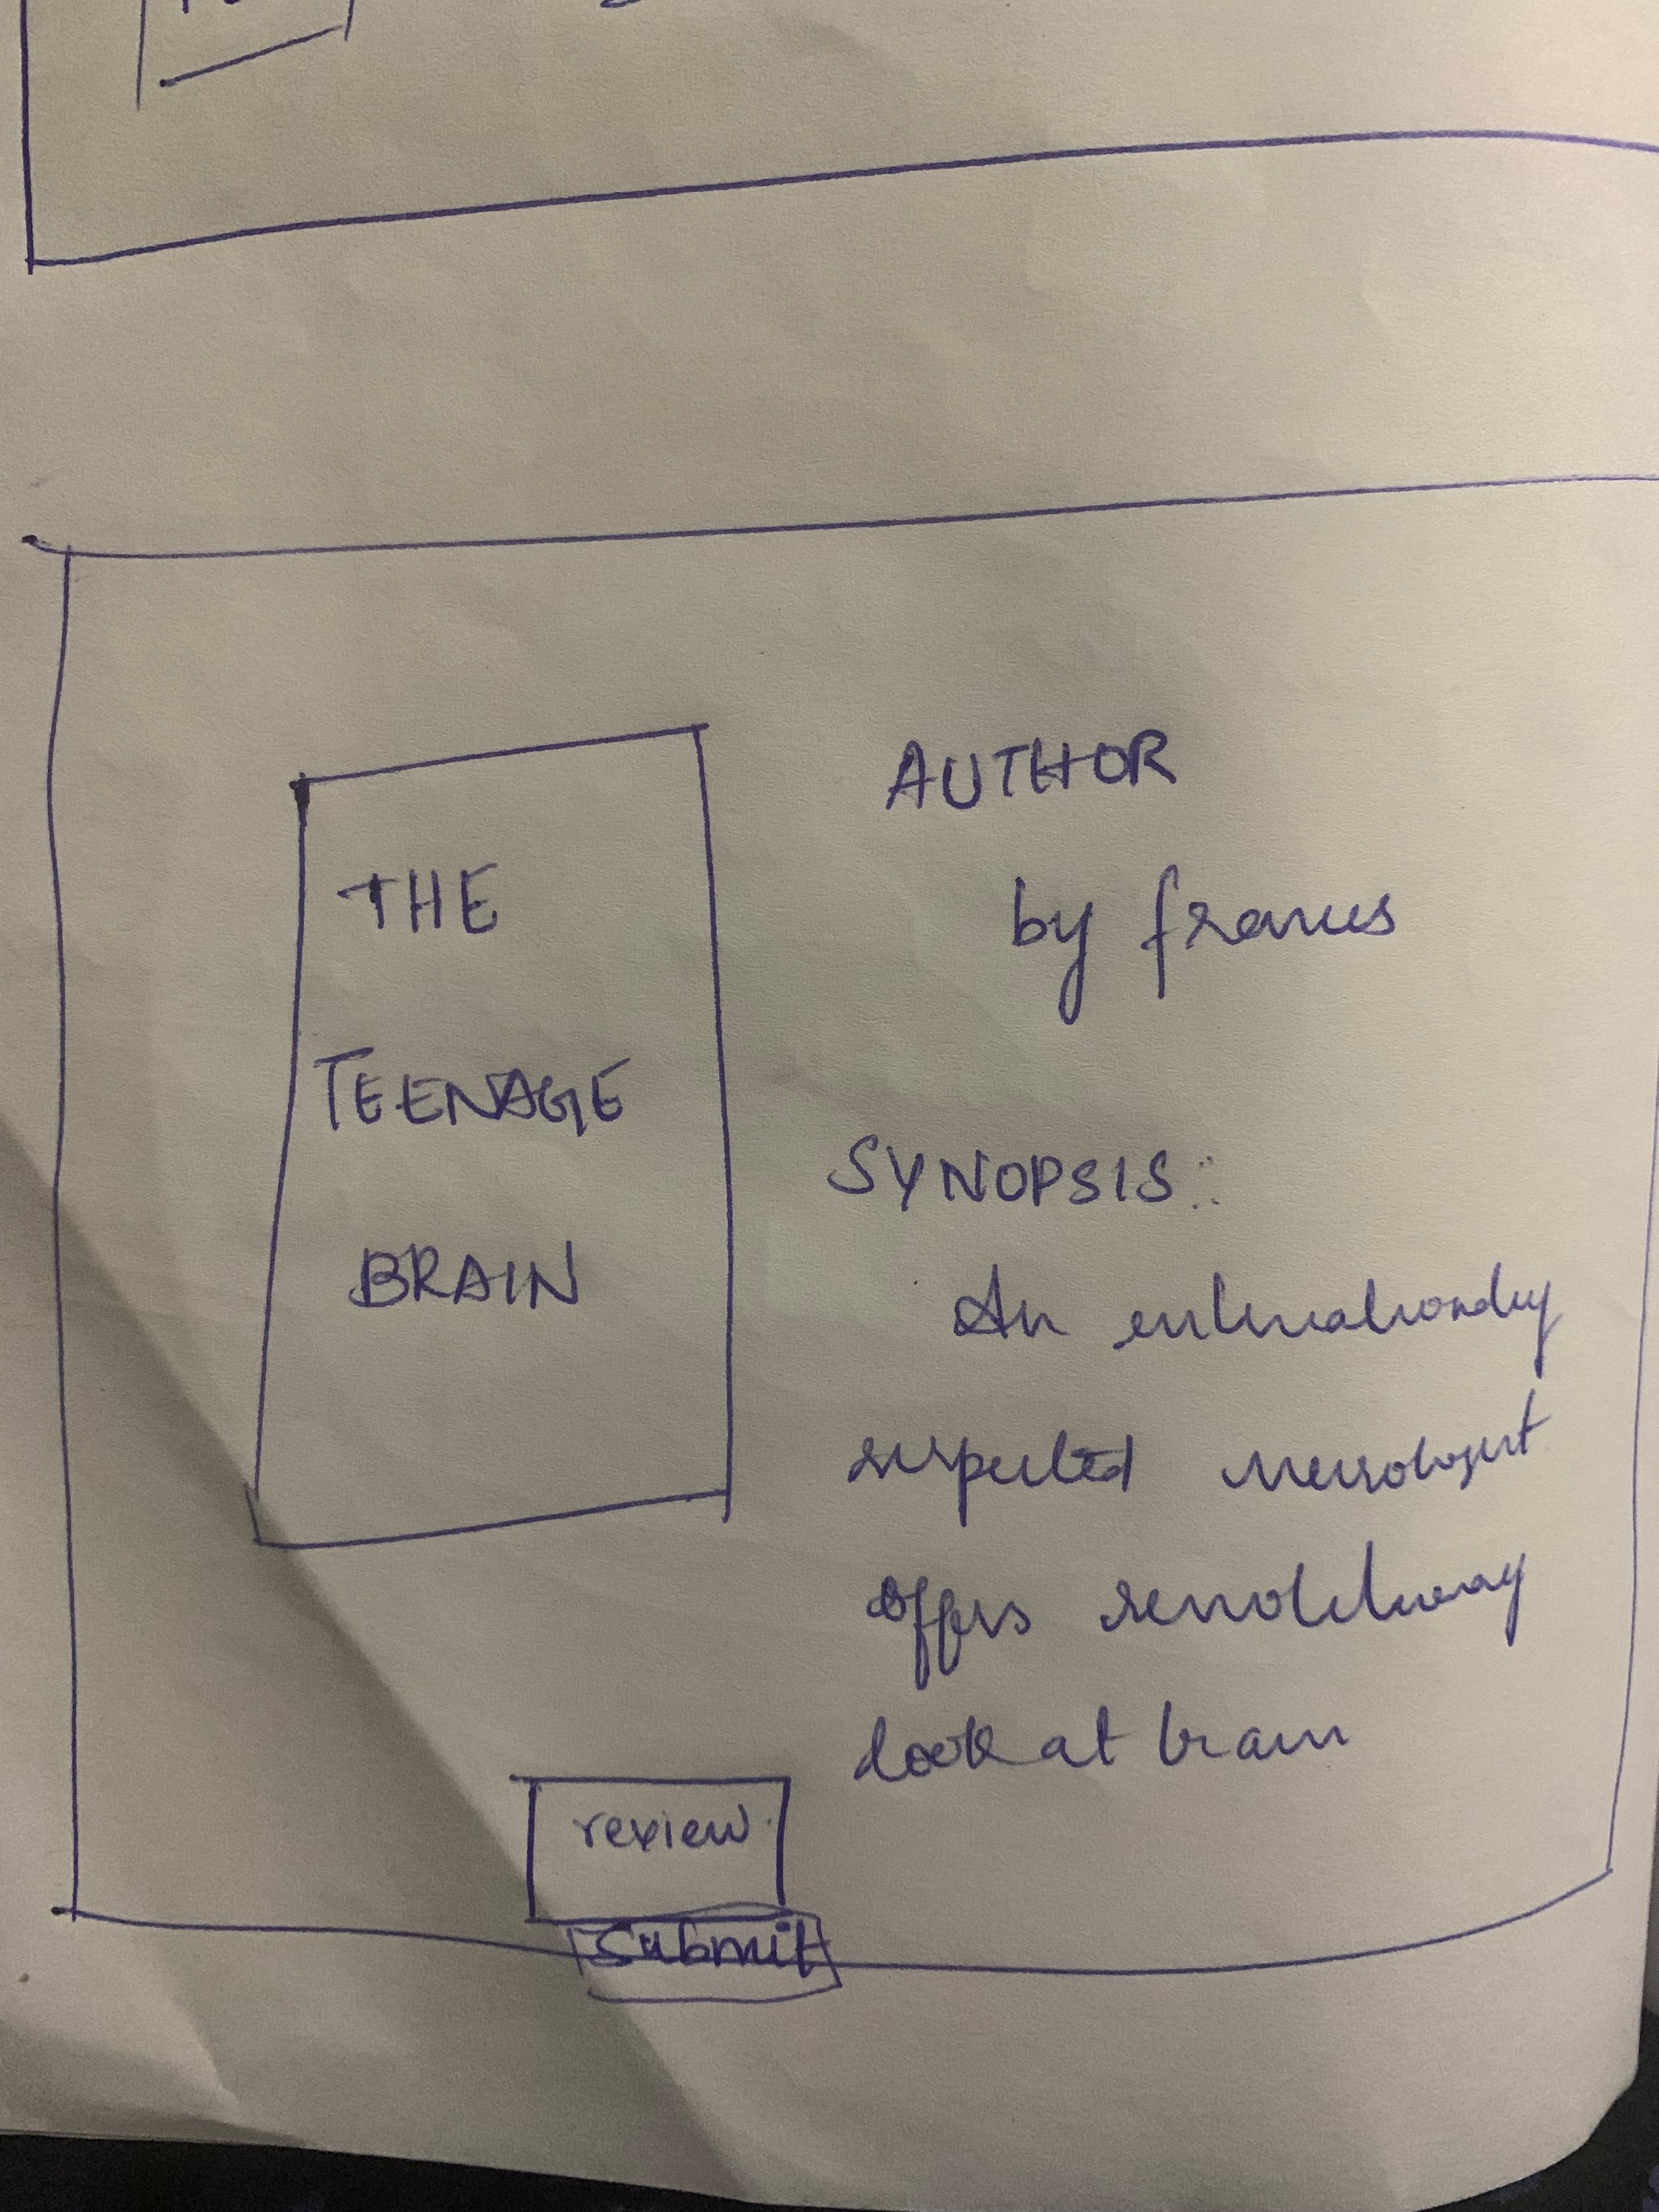 THE
TEENAGE
BRAIN
AUTHOR
by frances
SYNOPSIS:
An internationally
respected neurologist
offers revolutionary
look at brain
review
Submit